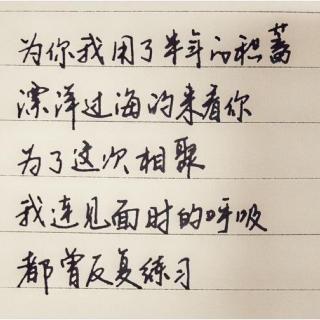 为你我用了半年的积蓄
漂洋过海的来看你
为了这次相聚
我连见面时的呼吸
都曾反复练习